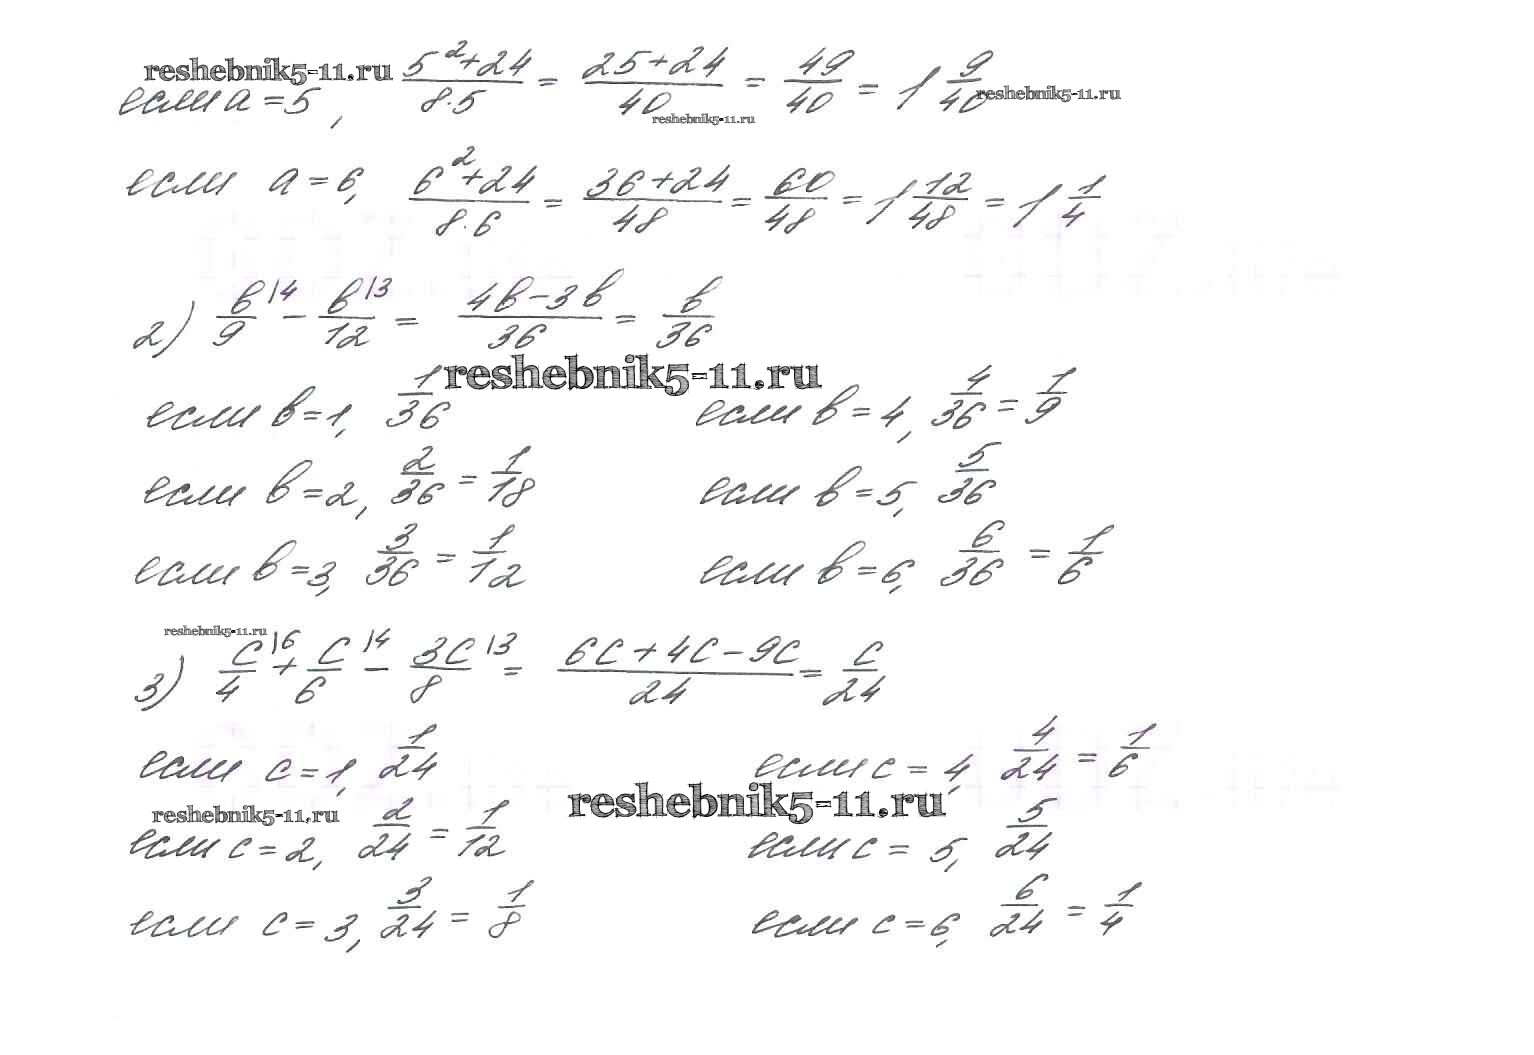 reshebnik5-11.ru
если a = 5, (5² + 24)/(8·5) = (25 + 24)/40 = 49/40 = 1 9/40
reshebnik5-11.ru
reshebnik5-11.ru
если a = 6, (6² + 24)/(8·6) = (36 + 24)/48 = 60/48 = 1 12/48 = 1 1/4
2) в/9 |4 − в/12 |3 = (4в − 3в)/36 = в/36
reshebnik5-11.ru
если в = 1, 1/36 если в = 4, 4/36 = 1/9
если в = 2, 2/36 = 1/18 если в = 5, 5/36
если в = 3, 3/36 = 1/12 если в = 6, 6/36 = 1/6
reshebnik5-11.ru
3) с/4 |6 + с/6 |4 − 3с/8 |3 = (6с + 4с − 9с)/24 = с/24
если с = 1, 1/24 если с = 4, 4/24 = 1/6
reshebnik5-11.ru reshebnik5-11.ru
если с = 2, 2/24 = 1/12 если с = 5, 5/24
если с = 3, 3/24 = 1/8 если с = 6, 6/24 = 1/4